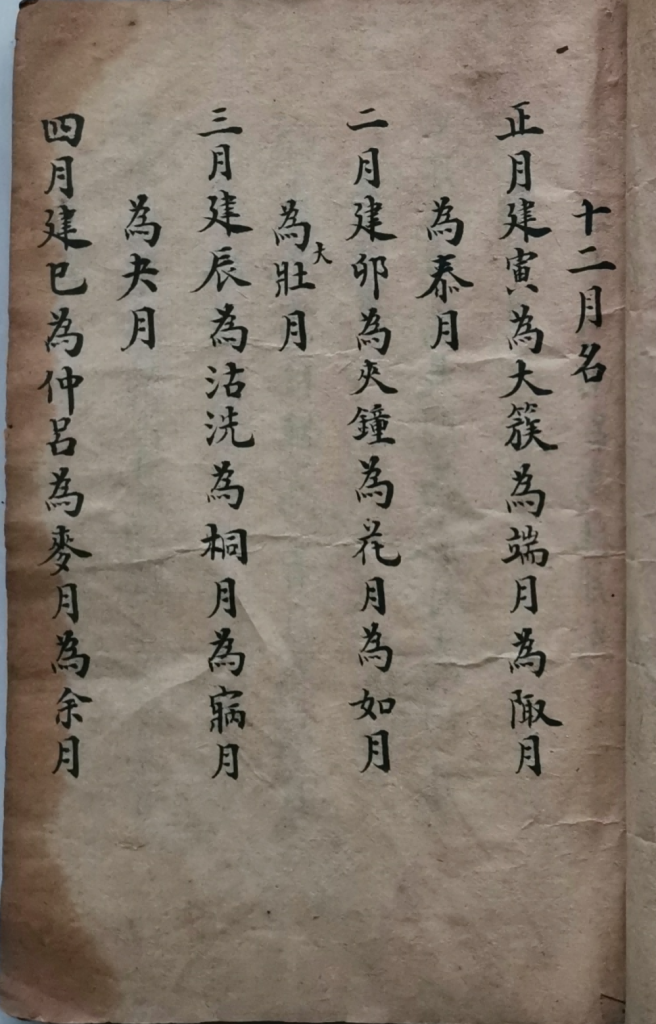 十二月名
正月建寅為大簇為端月為陬月
為泰月
二月建卯為夾鐘為花月為如月
為大壯月
三月建辰為沽洗為桐月為寎月
為夬月
四月建巳為仲呂為麥月為余月